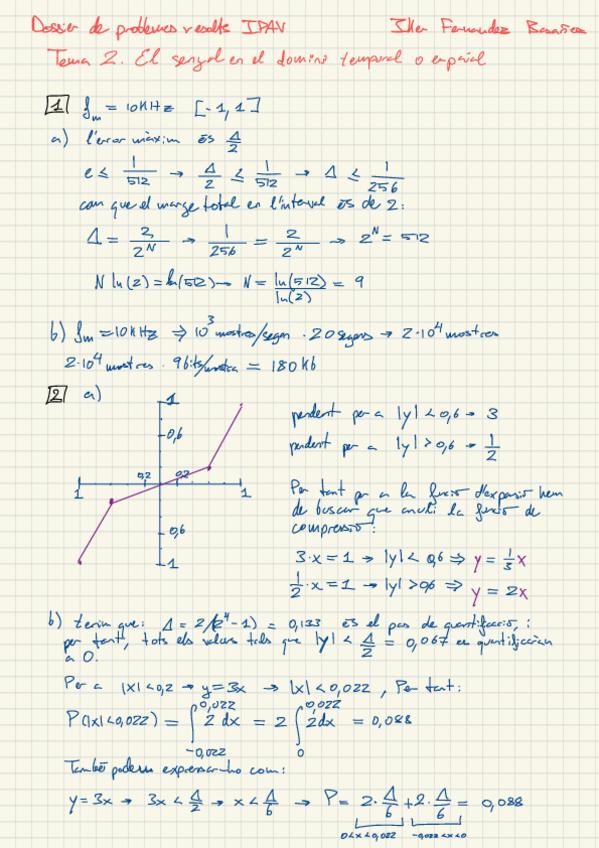 Dossier de problemes resolts IPAV Iker Fernandez
Tema 2. El senyal en el domini temporal o espaial
1 fm = 10KHz [-1, 1]
a) l'error màxim és Δ/2
e ≤ 1/512 → Δ/2 ≤ 1/512 → Δ ≤ 1/256
com que el marge total en l'interval és de 2:
Δ = 2/2^N → 1/256 = 2/2^N → 2^N = 512
N ln(2) = ln(512) → N = ln(512)/ln(2) = 9
b) fm = 10KHz ⇒ 10^3 mostres/segon · 20 segons → 2·10^4 mostres
2·10^4 mostres · 9 bits/mostra = 180 kb
2 a)
1
0,6
0,2 0,2
1 1
0,6
1
pendent per a |y| < 0,6 → 3
pendent per a |y| > 0,6 → 1/2
Per tant per a la funció d'expansió hem
de buscar que anul·li la funció de
compressió:
3·x = 1 → |y| < 0,6 ⇒ y = 1/3 x
1/2·x = 1 → |y| > 0,6 ⇒ y = 2x
b) tenim que: Δ = 2/(2^4-1) = 0,133 és el pas de quantificació, i
per tant, tots els valors tals que |y| < Δ/2 = 0,067 es quantificaran
a 0.
Per a |x| < 0,2 → y = 3x → |x| < 0,022, Per tant:
P(|x| < 0,022) = ∫_{-0,022}^{0,022} 2 dx = 2 ∫_0^{0,022} 2dx = 0,088
També podem expressar-ho com:
y = 3x → 3x < Δ/2 → x < Δ/6 → P = 2·Δ/6 + 2·Δ/6 = 0,088
0<x<0,022 -0,022<x<0